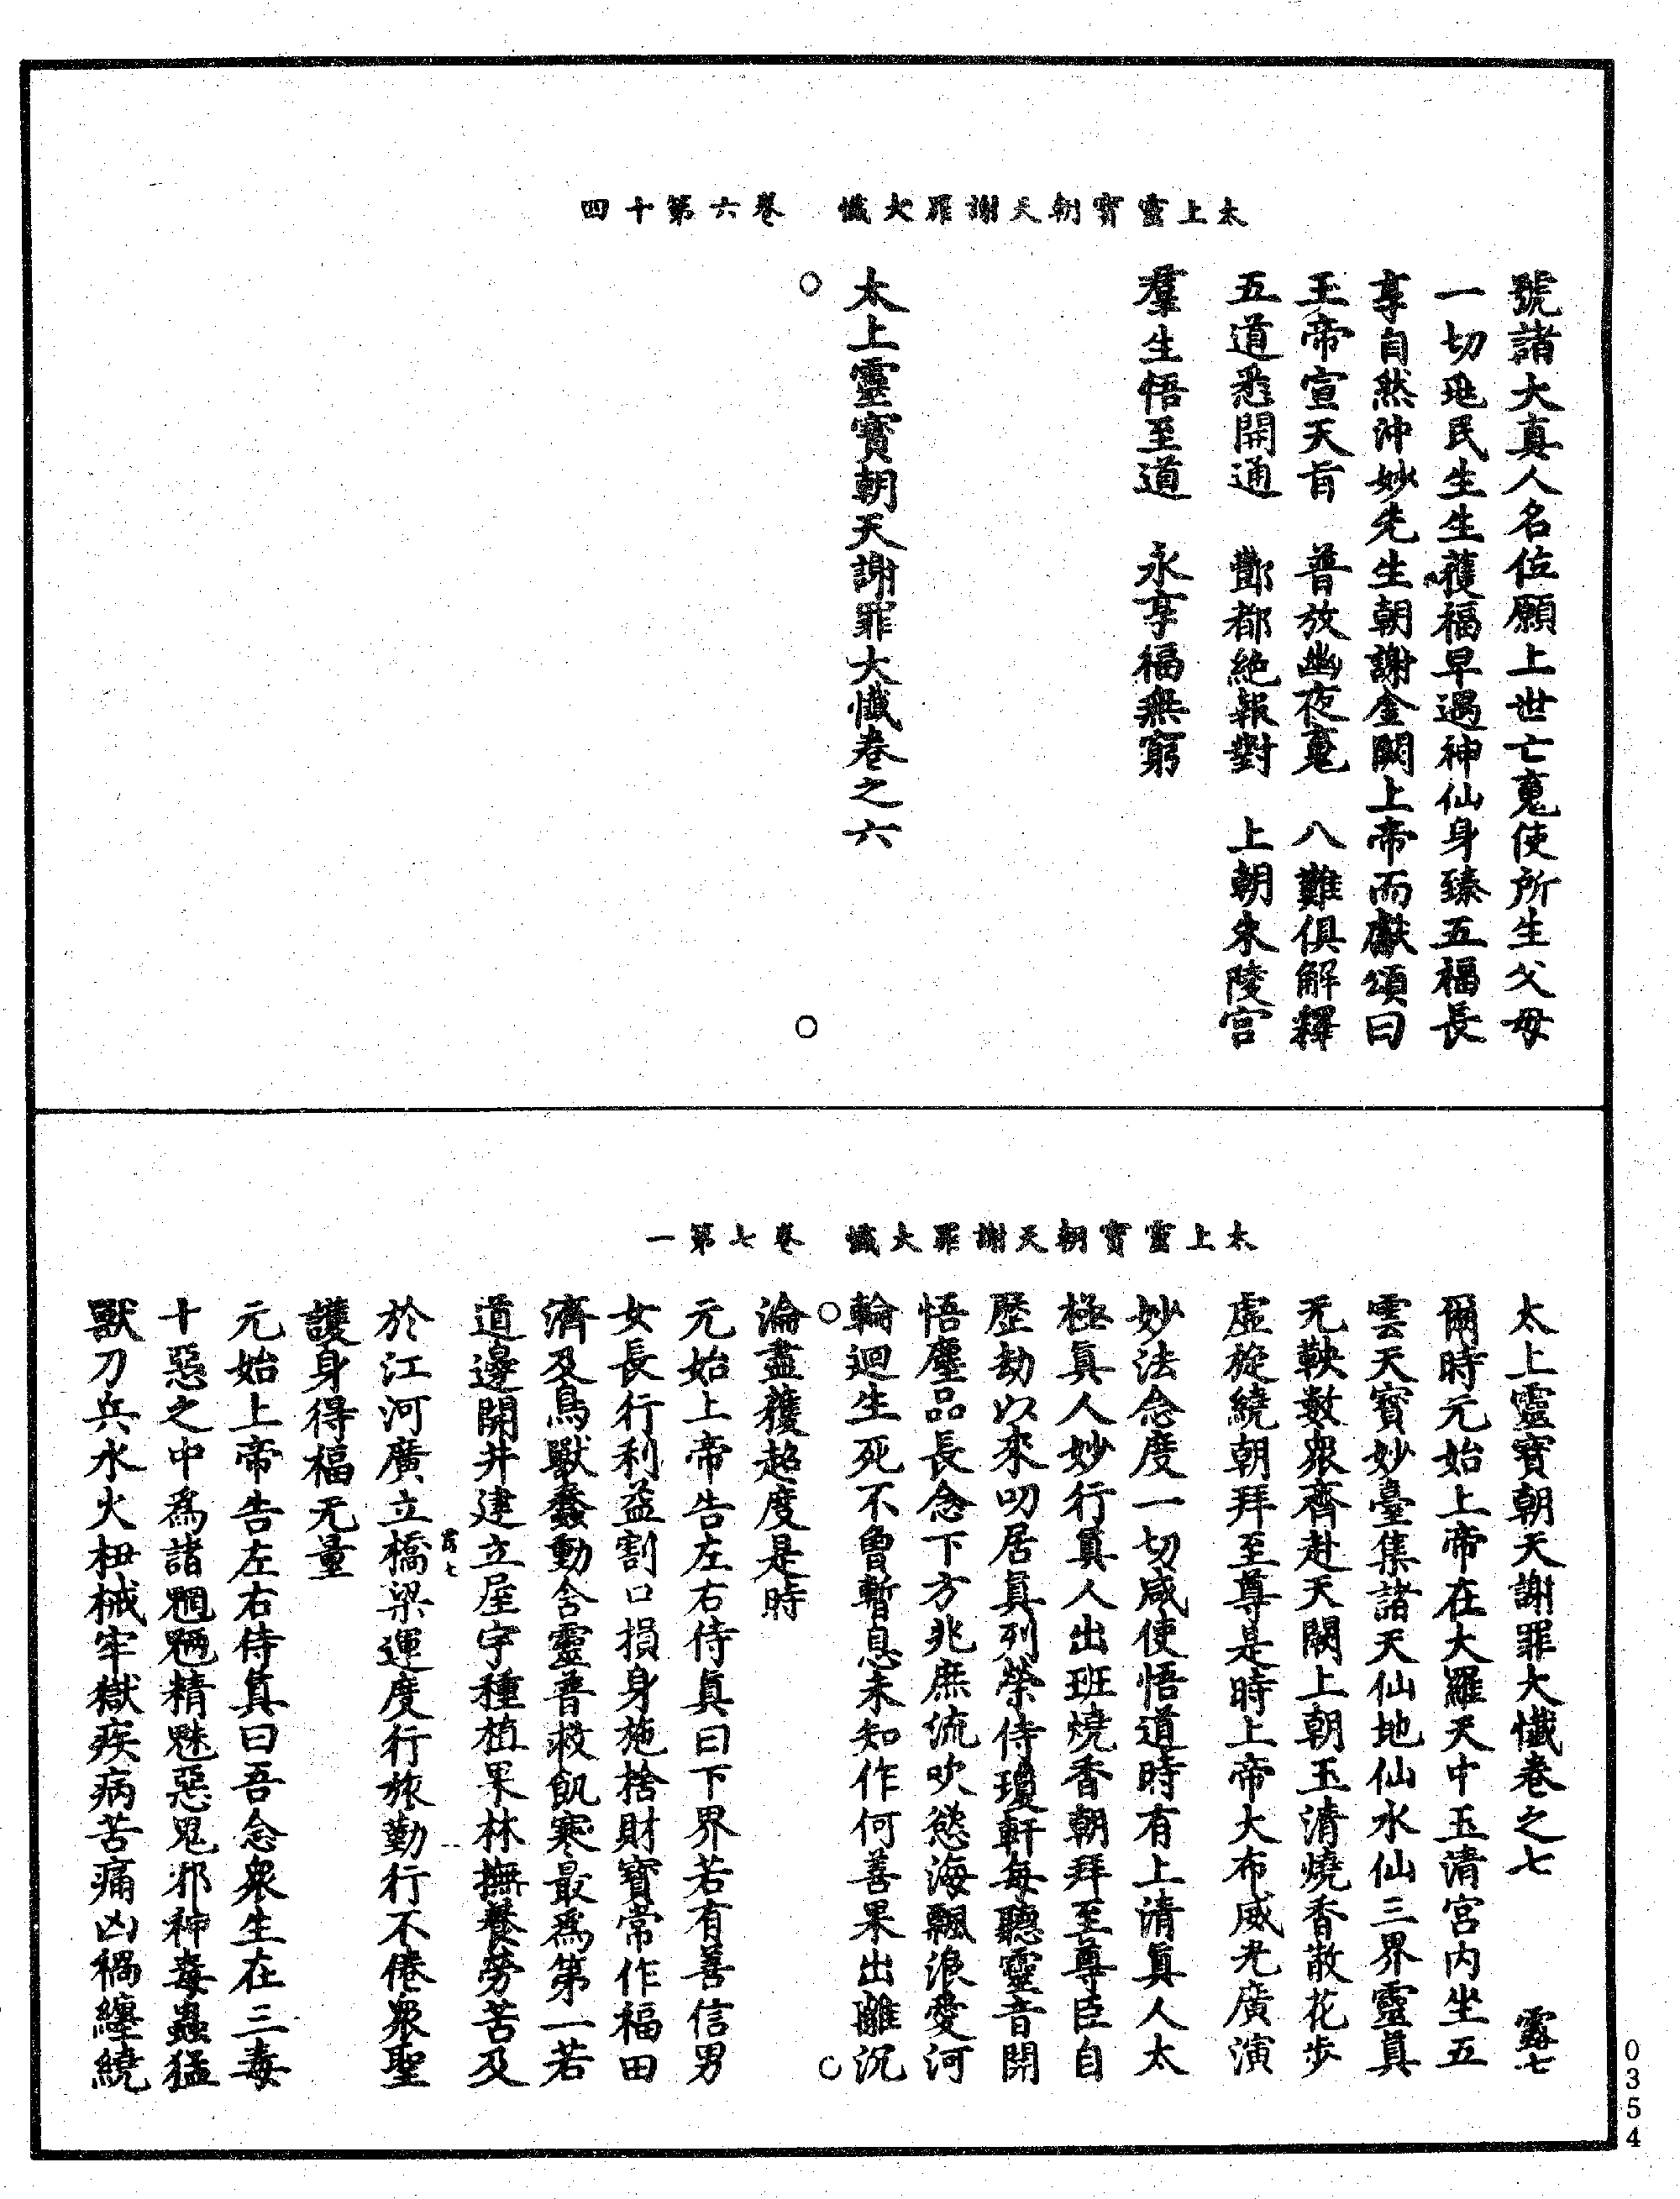 太上靈寶朝天謝罪大懺　卷六第十四
號諸大真人名位願上世亡䰟使所生父母
一切兆民生生獲福早遇神仙身臻五福長
享自然沖妙先生朝謝金闕上帝而獻頌曰
玉帝宣天旨　普放幽夜䰟　八難俱解釋
五道悉開通　酆都絶報對　上朝朱陵宫
羣生悟至道　永享福無窮
太上靈寶朝天謝罪大懺卷之六
太上靈寶朝天謝罪大懺　卷七第一
太上靈寶朝天謝罪大懺卷之七　露七
爾時元始上帝在大羅天中玉清宮内坐五
雲天寳妙臺集諸天仙地仙水仙三界靈眞
无鞅數衆齊赴天闕上朝玉清燒香散花步
虛旋繞朝拜至尊是時上帝大布威光廣演
妙法念度一切咸使悟道時有上清眞人太
極眞人妙行眞人出班燒香朝拜至尊臣自
歷劫以來叨居眞列榮侍瓊軒每聽靈音開
悟塵品長念下方兆庶流吹慾海飄浪愛河
輪迴生死不曾暫息未知作何善果出離沉
淪盡獲超度是時
元始上帝告左右侍眞曰下界若有善信男
女長行利益割口損身施捨財寶常作福田
濟及鳥獸蠢動含靈普救飢寒最爲第一若
道邊開井建立屋宇種植果林撫養勞苦及
於江河廣立橋梁運度行旅勤行不倦衆聖
露七
護身得福无量
元始上帝告左右侍眞曰吾念衆生在三毒
十惡之中爲諸魍魎精魅惡鬼邪神毒蟲猛
獸刀兵水火杻械牢獄疾病苦痛凶禍纏繞
0354